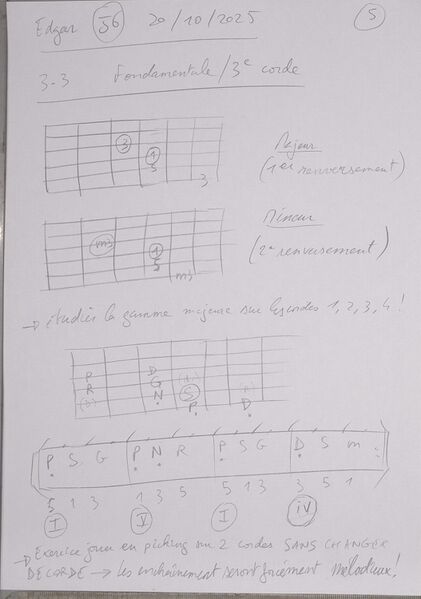 Edgar 56 20/10/2025 5
3-3 Fondamentale/3e corde
3 1 5 3
Majeur
(1er renversement)
m3 1 5 m3
Mineur
(2e renversement)
→ étudier la gamme majeure sur les cordes 1, 2, 3, 4!
P D
R G S
N P D
P S G P N R P S G D S m
5 1 3 1 3 5 5 1 3 3 5 1
I V I IV
→ Exercice jouer en picking sur 2 cordes SANS CHANGER
DE CORDE → les enchaînement seront forcément mélodieux!